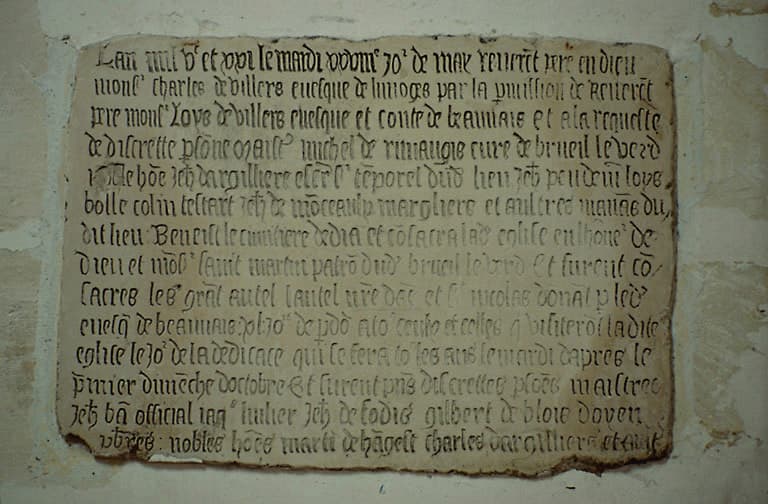 Lan mil vc et xxi le mardi xxviiie jor de may reveret pere en dieu
monsr charles de villers evesque de limoges par la pmission de Reveret
pere monsr Loys de villers evesque et conte de beauvais et a la requeste
de discrette psone maistre michel de cure de brueil le verd
hoe Jeh dargilliere esc sr teporel dud lieu Jeh loys
bolle colin testart Jeh de moceaulx margliers et aultres manas du
dit lieu Beneist le cimitiere dedia et cosacra lad eglise en lhoner de
dieu et mosr saint martin patro dud brueil le verd Et furent co
sacres les grat autel lautel nre dae et st nicolas dona p led
evesq de beauvais xl jors de pdo a to ceulx et celles q visiterot ladite
eglise le jor de la dedicace qui se fera to les ans le mardi dapres le
pmier dimeche doctobre Et furent pns discrettes psoes maistres
Jeh official jaqs hulier Jeh de fodis gilbert de blois doyen
nobles hoes marti de hagest charles dargilliers et